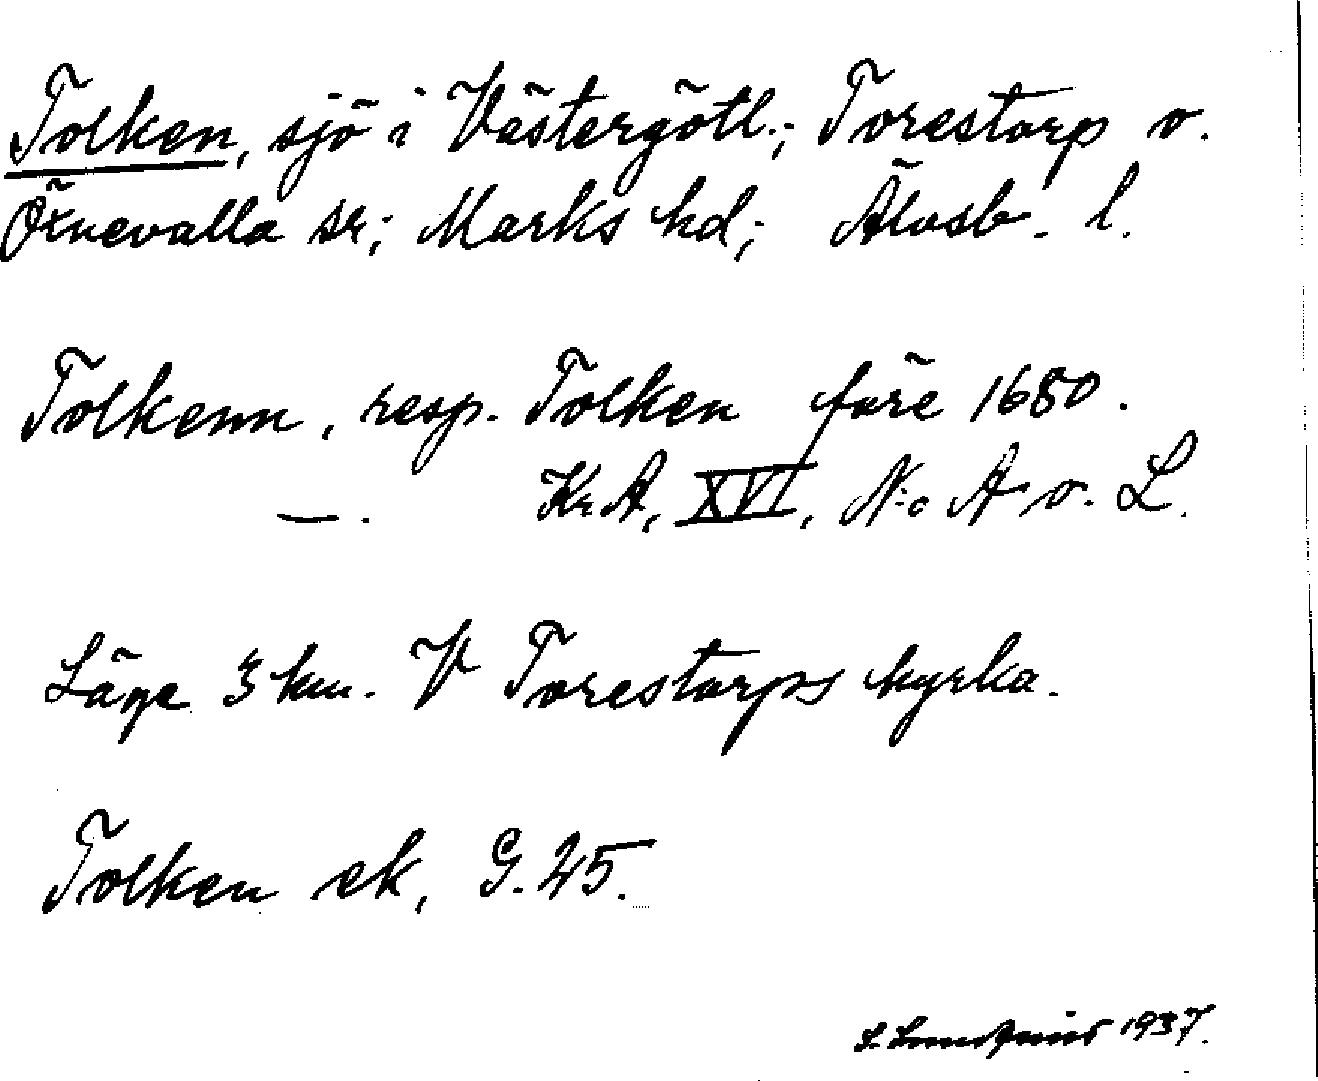 Tolken, sjö i Västergötl.; Torestorp o.
Öxnevalla sr; Marks hd; Älvsb. l.
Tolkenn, resp. Tolken före 1680.
—. KrA, XVI, N:o A o. L.
Läge 3 km. V Torestorps kyrka.
Tolken ek, G. 45.
S. Lundqvist 1937.